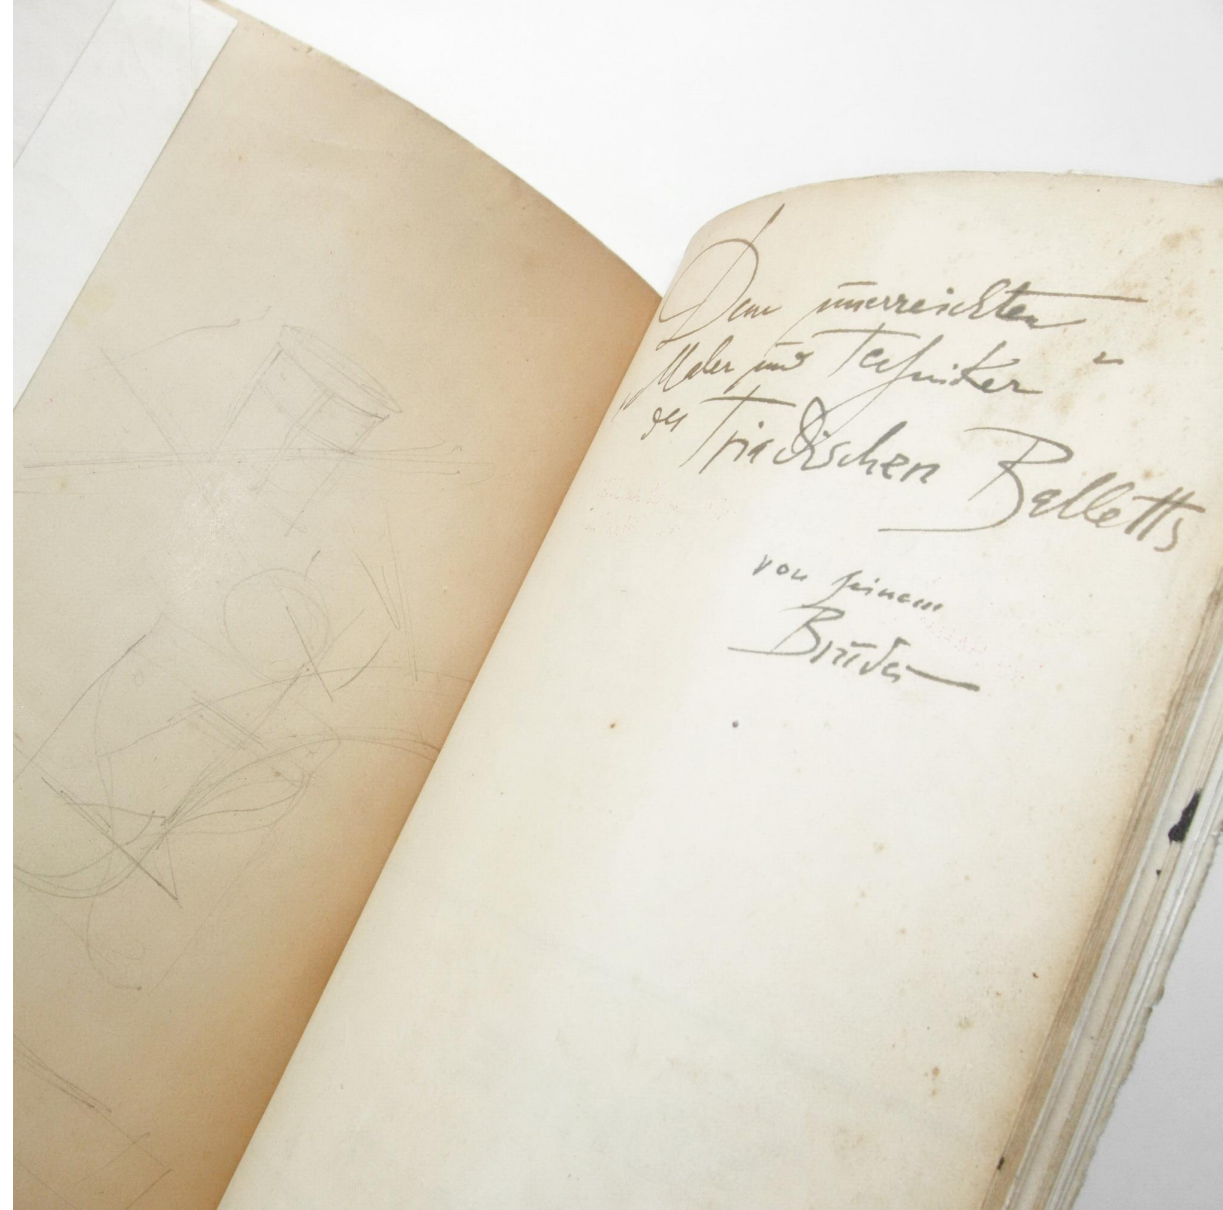 Dem unerreichten
Maler und Techniker
des Triadischen Balletts
von seinem
Bruder